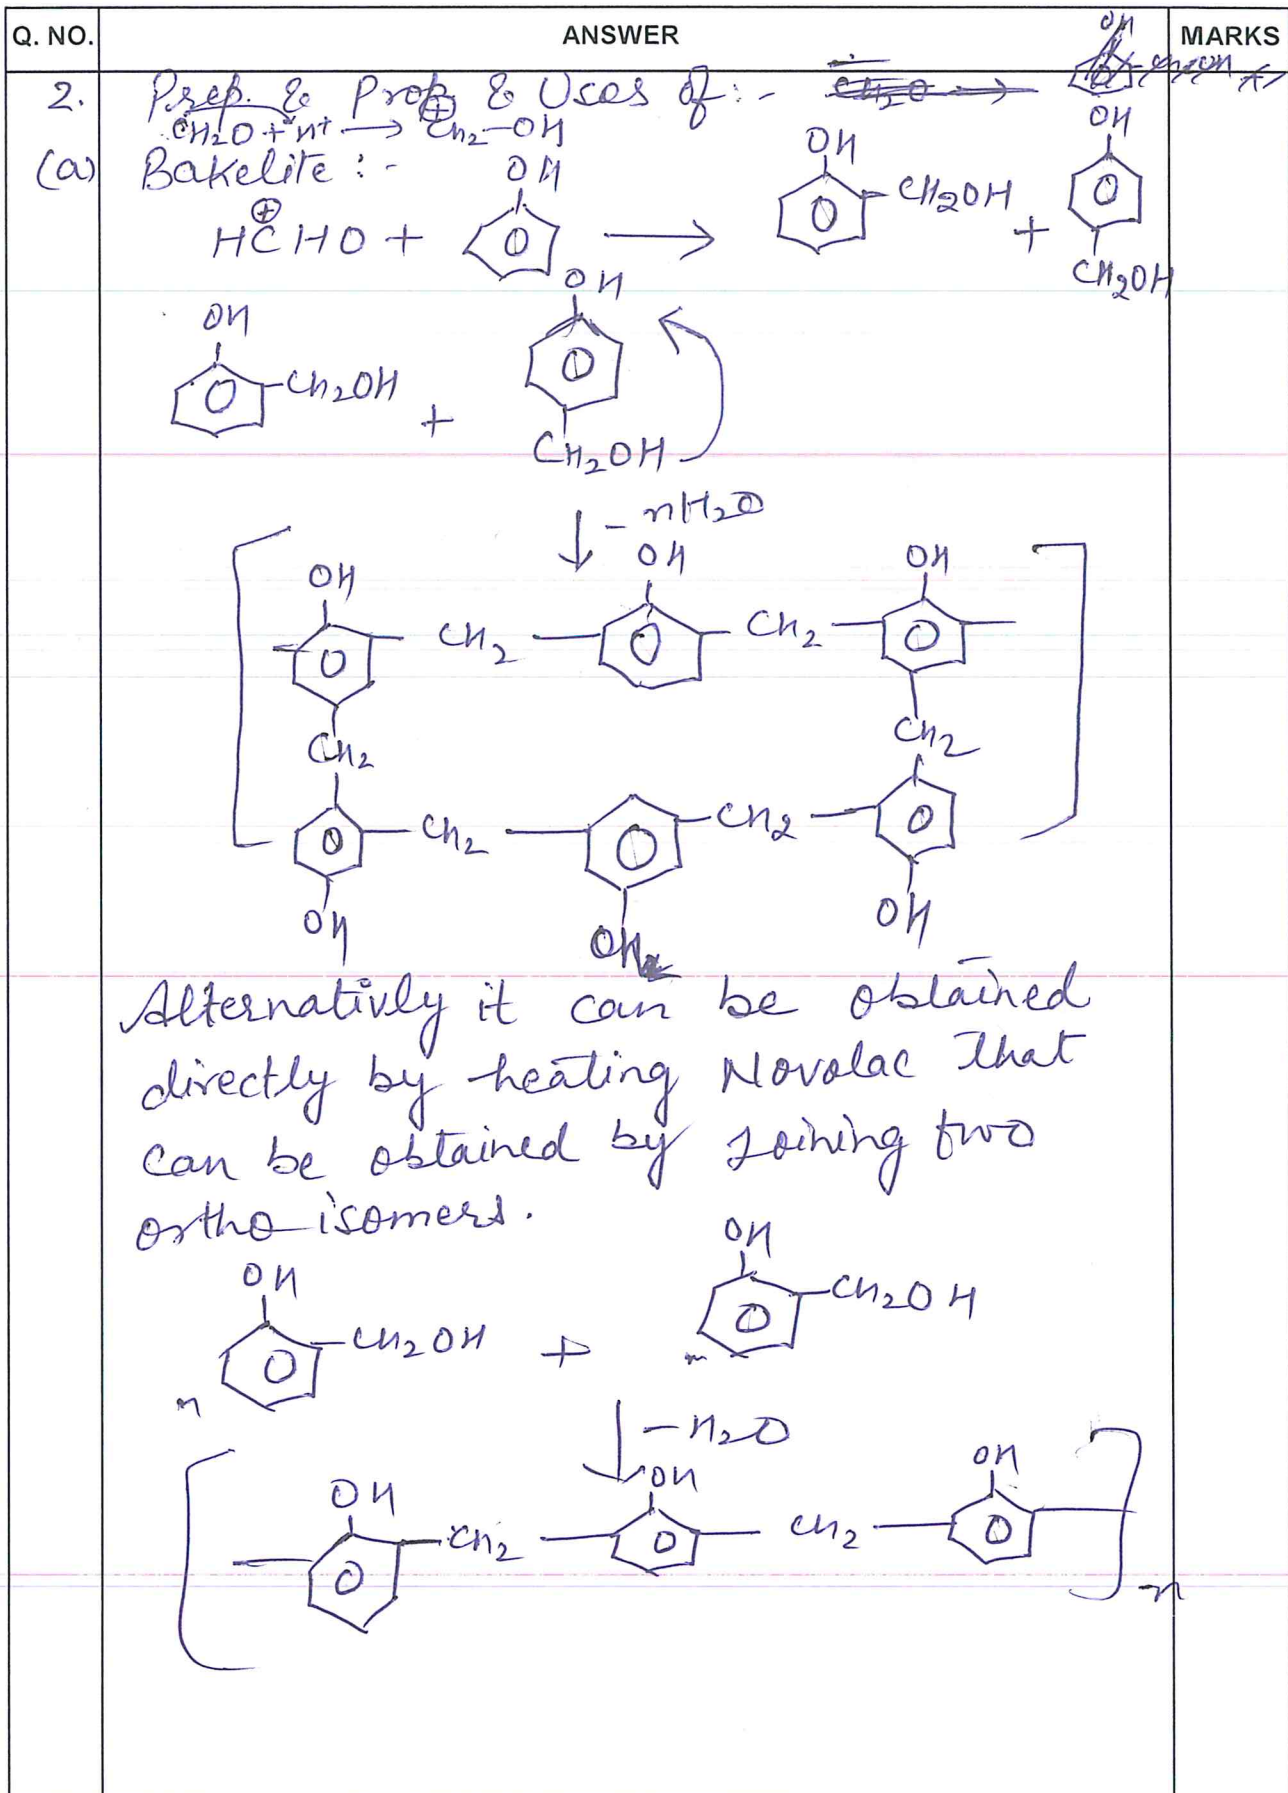 Q. NO. ANSWER MARKS
2. Prep. & Prop & Uses of :-
CH2O + H+ → ⊕CH2-OH
(a) Bakelite :-
HC⊕HO + OH → OH CH2OH + OH CH2OH
OH CH2OH + OH CH2OH
↓ - nH2O
OH OH OH
CH2 CH2
CH2 CH2
CH2 CH2
OH OH OH
Alternativly it can be obtained
directly by heating Novolac that
can be obtained by joining two
ortho isomers.
n OH CH2OH + n OH CH2OH
↓ - H2O
OH OH OH
CH2 CH2
n